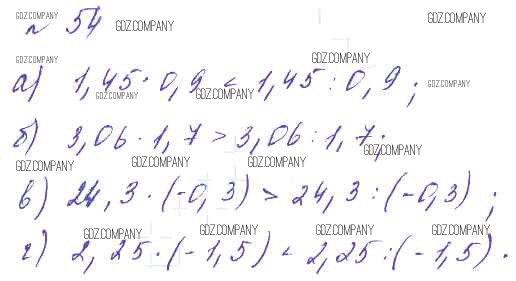 GDZ.COMPANY GDZ.COMPANY
№ 54 GDZ.COMPANY
GDZ.COMPANY GDZ.COMPANY
а) 1,45 · 0,9 < 1,45 : 0,9 ; GDZ.COMPANY
GDZ.COMPANY GDZ.COMPANY
б) 3,06 · 1,7 > 3,06 : 1,7;
GDZ.COMPANY
GDZ.COMPANY GDZ.COMPANY GDZ.COMPANY
в) 24,3 · (-0,3) > 24,3 : (-0,3) ;
GDZ.COMPANY GDZ.COMPANY GDZ.COMPANY GDZ.COMPANY
г) 2,25 · (-1,5) < 2,25 : (-1,5) .